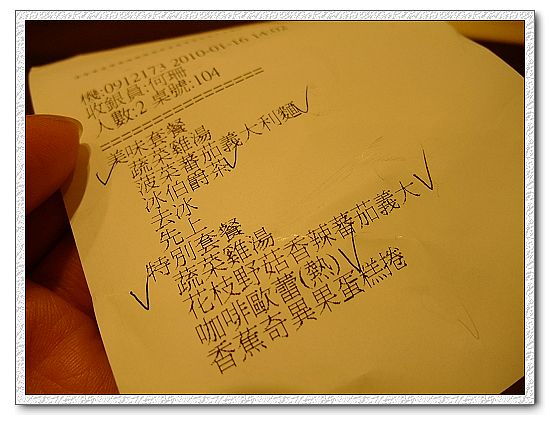 機:0912173 2010-01-16 14:02
收銀員:何珊
人數:2 桌號:104
美味套餐
蔬菜雞湯
波菜蕃茄義大利麵
冰伯爵茶
去冰
先上
特別套餐
蔬菜雞湯
花枝野菇香辣蕃茄義大
咖啡歐蕾(熱)
香蕉奇異果蛋糕捲